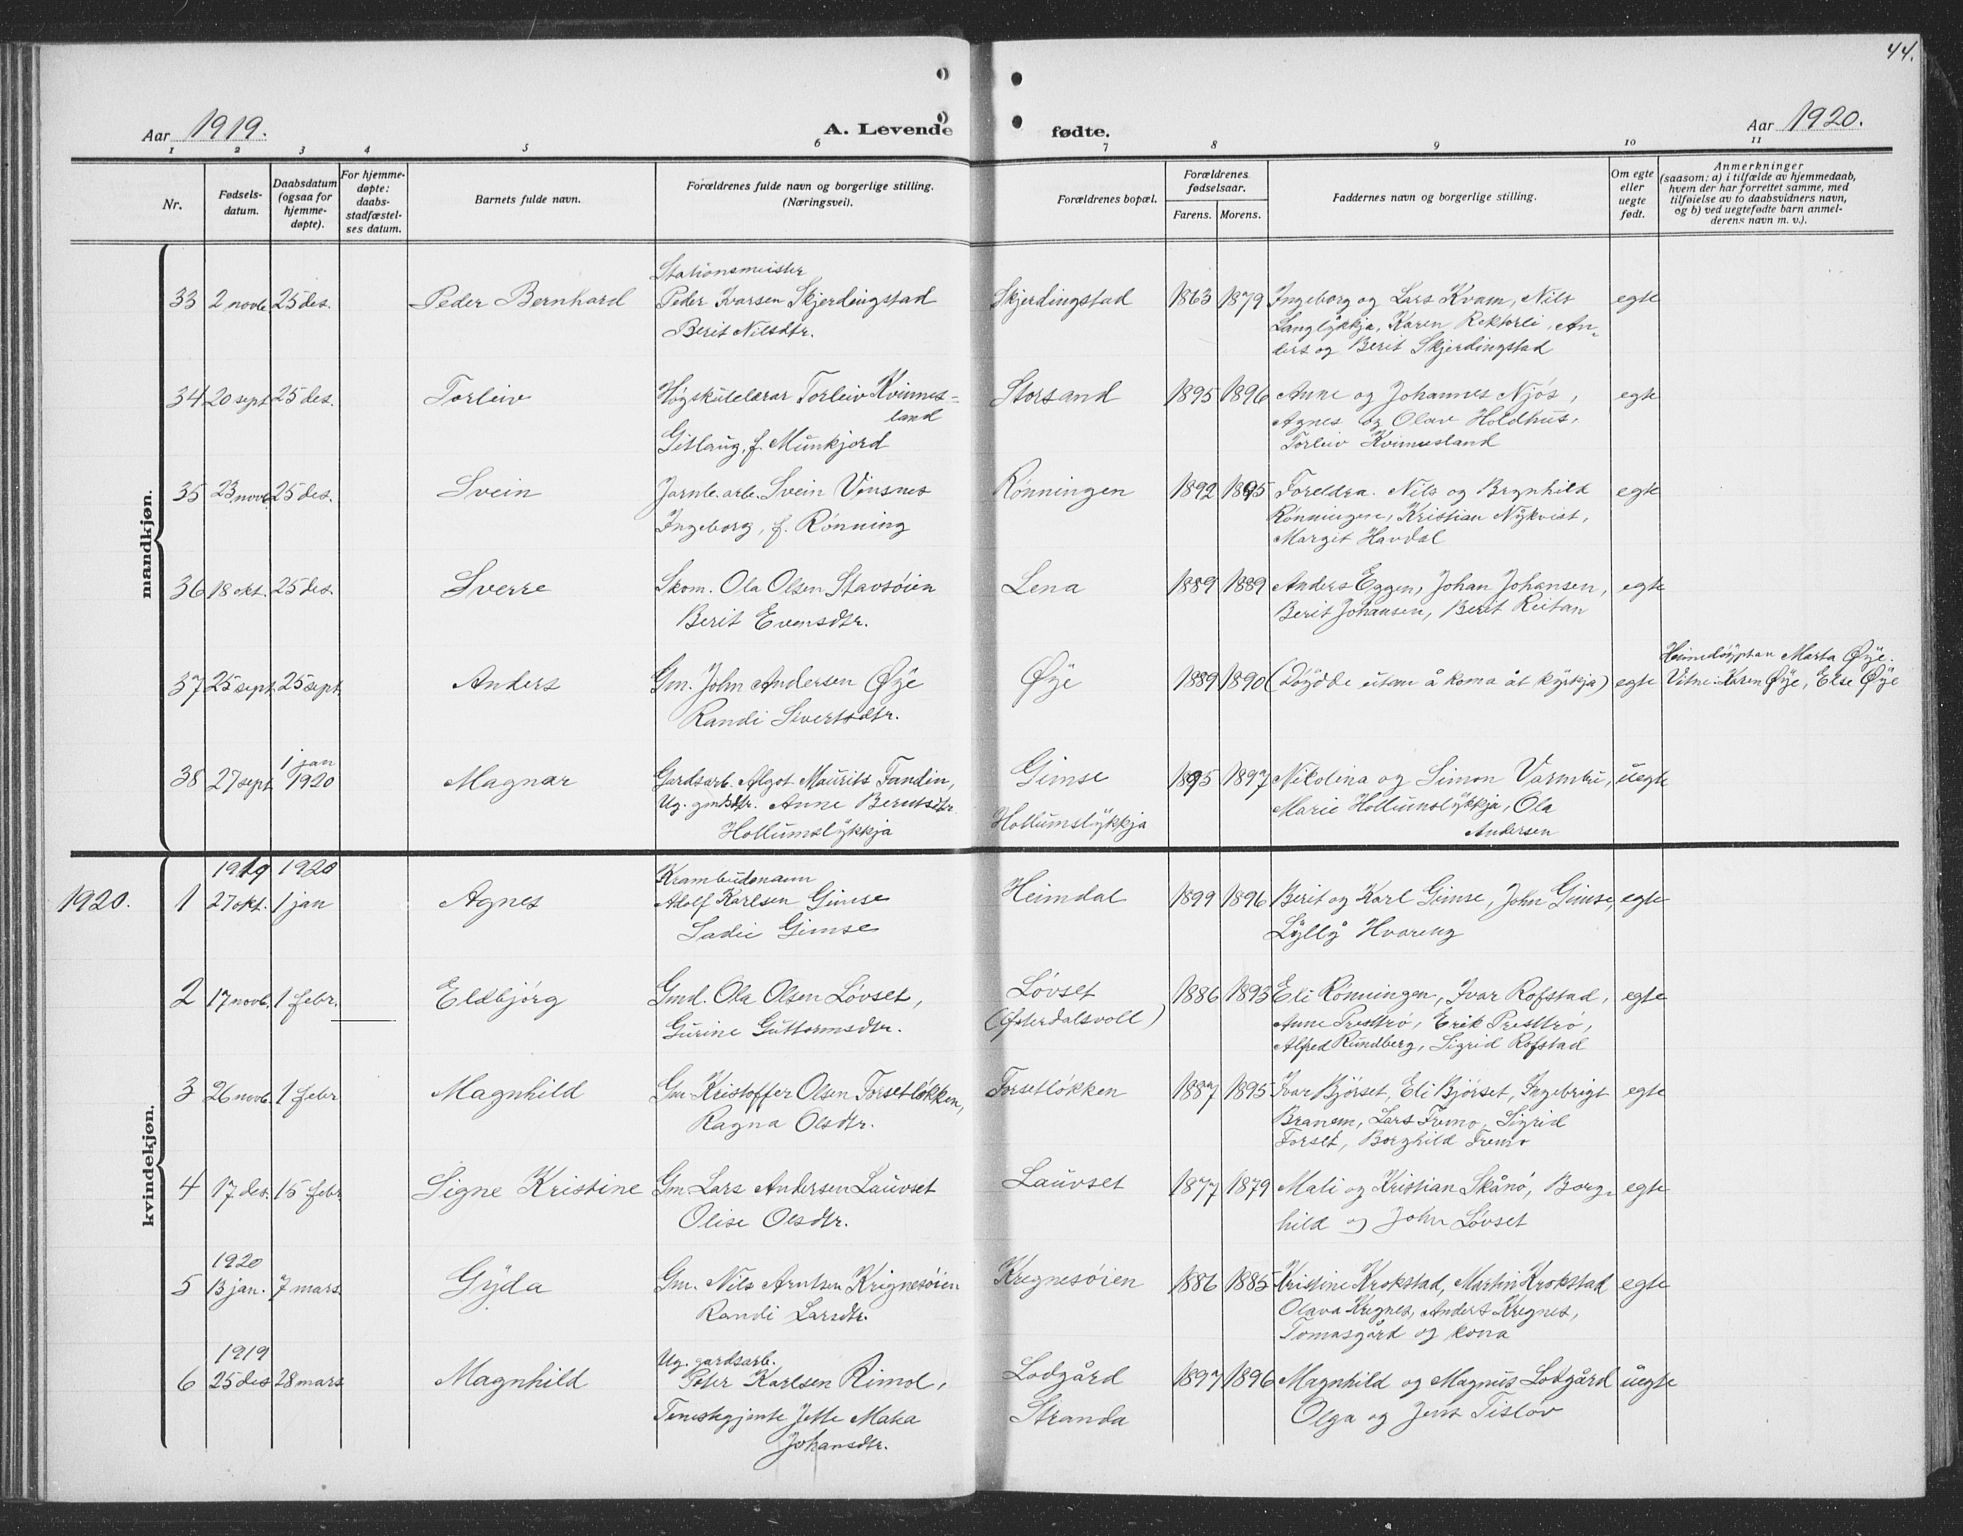 44.
Aar 1919.
A. Levende fødte.
Aar 1920.
1 2 3 4 5 6 7 8 9 10 11
Nr.
Fødsels-
datum.
Daabsdatum
(ogsaa for
hjemme-
døpte).
For hjemme-
døpte:
daabs-
stadfæstel-
ses datum.
Barnets fulde navn.
Forældrenes fulde navn og borgerlige stilling.
(Næringsvei).
Forældrenes bopæl.
Forældrenes
fødselsaar.
Farens. Morens.
Faddernes navn og borgerlige stilling.
Om egte
eller
uegte
født.
Anmerkninger
(saasom: a) i tilfælde av hjemmedaab,
hvem der har forrettet samme, med
tilføielse av to daabsvidners navn,
og b) ved uegtefødte barn anmel-
derens navn m. v.).
mandkjøn.
Stationsmeister
33 2 novb. 25 des. Peder Bernhard Peder Ivarsen Skjerdingstad Skjerdingstad 1863 1879 Ingeborg og Lars Kvam, Nils egte
Berit Nilsdtr. Langlykkja, Karen Rektorli, An-
ders og Berit Skjerdingstad
34 20 sept 25 des. Torleiv Høgskulelærar Torleiv Kvinnes- Storsand 1895 1896 Anne og Johannes Njøs, egte
land Agnes og Olav Holdhus,
Gitlaug, f. Munkjord Torleiv Kvinnesland
35 23 novb. 25 des. Svein Jarnb. arb. Svein Vinsnes Rønningen 1892 1895 Foreldra. Nils og Brynhild egte
Ingeborg, f. Rønning Rønningen, Kristian Nykvist,
Margit Havdal
36 18 okt. 25 des. Sverre Skom. Ola Olsen Stavsøien Lena 1889 1889 Anders Eggen, Johan Johansen, egte
Berit Evensdtr. Berit Johansen, Berit Reitan
Heimedøyptan Marta Øye.
37 25 sept. 25 sept. Anders Gm. John Andersen Øye Øye 1889 1890 (Døydde utan å koma åt kyrkja) egte Vitne: Karen Øye, Else Øye
Randi Sivertsdtr.
1 jan
38 27 sept 1920 Magnar Gardsarb. Algot Maurits Fandin, Gimse 1895 1897 Nikolina og Simon Varmbu, uegte
Ug. gmdtr. Anne Berntsdtr. Marie Hollumslykkja, Ola
Hollumslykkja Hollumslykkja Andersen
kvindekjøn.
1919 1920 Krambudsmann
1920. 1 27 okt. 1 jan Agnes Adolf Karlsen Gimse Heimdal 1899 1896 Berit og Karl Gimse, John Gimse, egte
Sadie Gimse Lylly Hvareng
2 17 novb. 1 febr. Eldbjørg Gmd. Ola Olsen Løvset, Løvset 1886 1893 Eli Rønningen, Ivar Rofstad, egte
Gurine Guttormsdtr. (Østerdalsvoll) Anne Prestrø, Erik Prestrø,
Alfred Rundberg, Sigrid Rofstad
3 26 novb. 1 febr Magnhild Gm. Kristoffer Olsen Forsetløkken, Forsetløkken 1887 1895 Ivar Bjørset, Eli Bjørset, Ingebrigt egte
Ragna Olsdtr. Branem, Lars Fremo, Sigrid
Forset, Borghild Fremo
4 17 des. 15 febr Signe Kristine Gm. Lars Andersen Lauvset Lauvset 1877 1879 Mali og Kristian Skånø, Borg- egte
Olise Olsdtr. hild og John Løvset
1920
5 13 jan. 7 mars Gyda Gm. Nils Arntsen Krignesøien Kregnesøien 1886 1885 Kristine Krokstad, Martin Krokstad egte
Randi Larsdtr. Olava Kregnes, Anders Kregnes,
Tomasgård og kona
1919 Ug. gardsarb.
6 25 des 28 mars Magnhild Peter Karlsen Rimol, Lodgård 1897 1896 Magnhild og Magnus Lodgård uegte
Tenestegjente Jette Matea Stranda Olga og Jens Tisløv
Johansdtr.